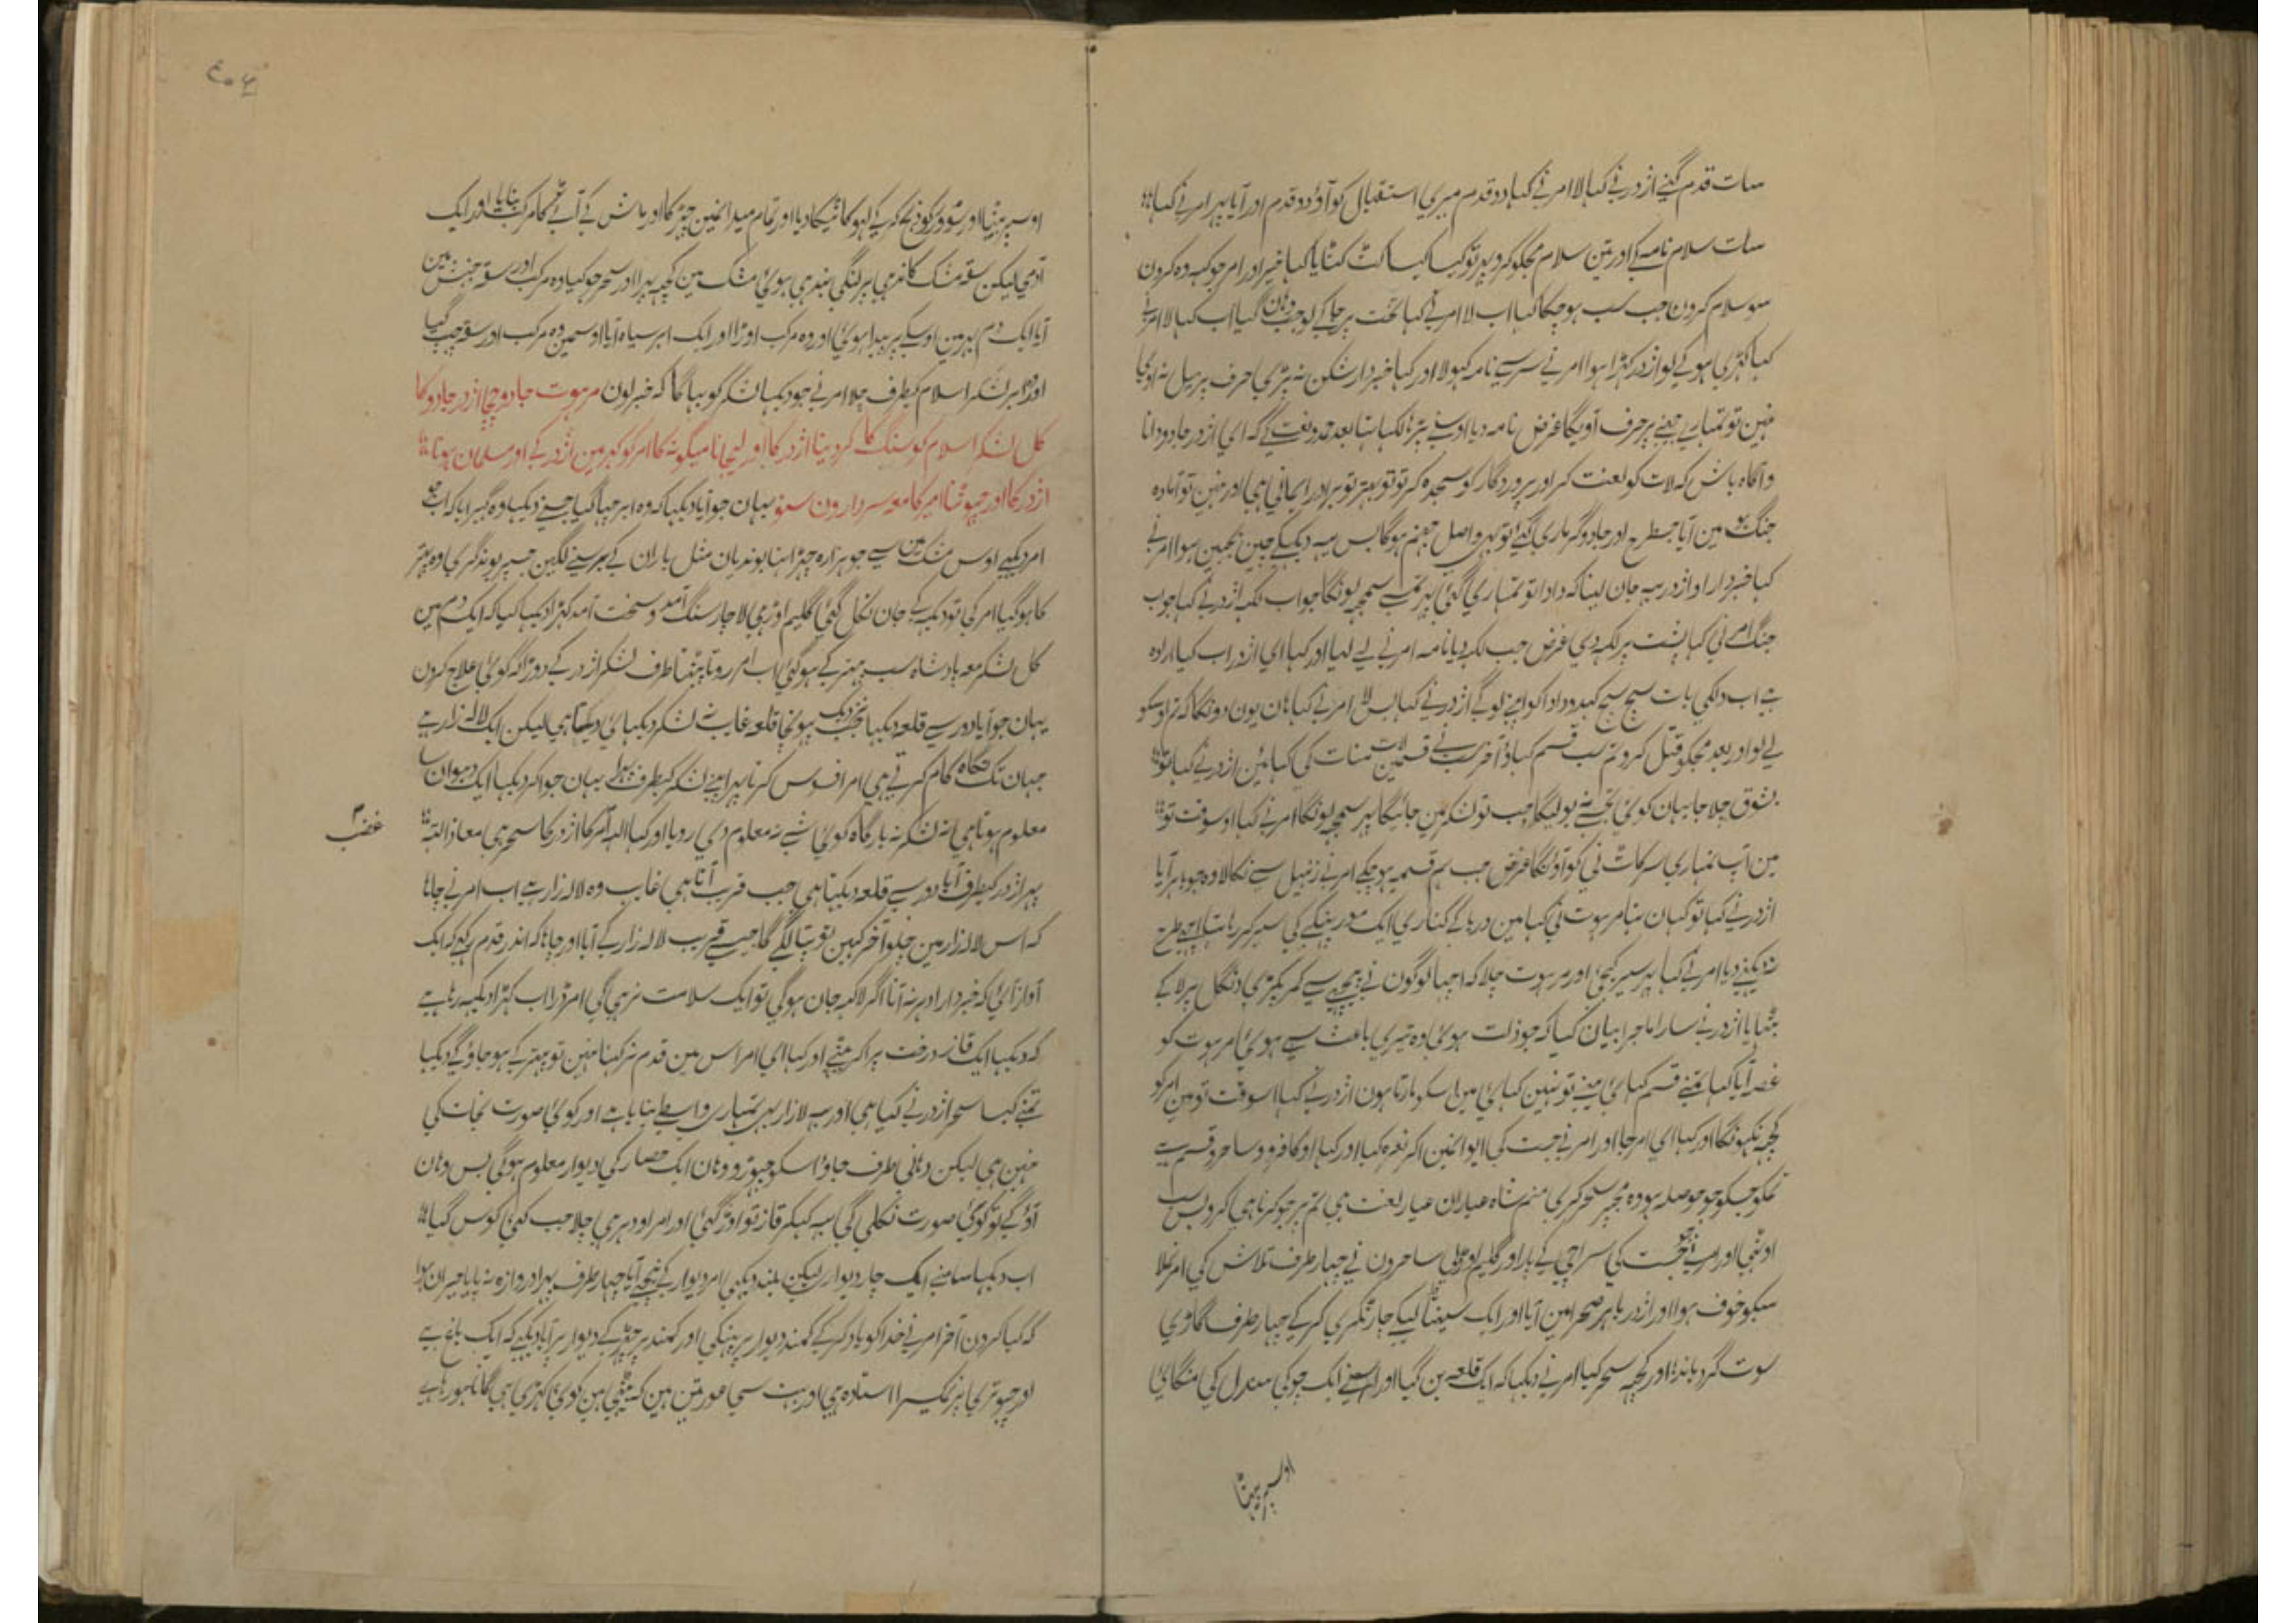 سات قدم گنے اژدر نے کہا لا امر نے کہا دو قدم میری استقبال کو آؤ دو قدم اور آیا پہر امر نے کہا
سات سلام نامہ کے اور تین سلام مجکو کرو پہر تو کہا خیر اور امر جو کہہ وہ کرون
سو سلام کرون جب سب ہو چکا کہا اب لا امر نے کہا تخت پر جا کے لو جب وہان گیا اب کہا لا امر نے
کہا کہڑی ہو کے لو اژدر کہڑا ہوا امر نے سر سے نامہ کہولا اور کہا خبردار شکن نہ پڑی حرف پر میل نہ آوی
نہین تو تمہارے پر حرف آویگا غرض نامہ دیا اوسنے پڑہا لکہا تہا بعد حمد و نعت کے کہ اے اژدر جادو دانا
و آگاہ باش کہ لات کو لعنت کر اور پروردگار کو سجدہ کر تو تو بہتر تو برادر ایمانی ہی اور نہین تو آمادہ
جنگ ہو مین آیا جسطرح اور جادوگر ماری گئے تو بہی واصل جہنم ہوگا بس یہ دیکہکے چین بجبین ہوا امر نے
کہا خبردار او اژدر یہ جان لینا کہ دادا تو تمہاری گئی پہر تمسے سمجہہ لونگا جواب لکہہ اژدر نے کہا جواب
جنگ امر نی کہا پشت پر لکہہ دی غرض جب لکہہ دیا نامہ امر نے لے لیا اور کہا ای اژدر اب کیا ارادہ
ہے اب دلکی بات سچ سچ کہدو دادا کو اپنے لوگے اژدر نے کہا بس لا امر نے کہا ہان یون دونگا کہ تم اوسکو
لے لو اور بعد مجکو قتل کرو تم سب قسم کہاؤ آخر سب نے قسمین لات منات کی کہائین اژدر نے کہا تو
بشوق چلا جا یہان کوئی تجسے نہ بولیگا جب تو لشکر مین جائیگا پہر سمجہہ لونگا امر نے کہا اوسوقت تو
مین آپ تمہاری سر کاٹ نی کو آؤنگا غرض جب سب قسمیہ ہو چکے امر نے زنبیل سے نکالا وہ جو باہر آیا
اژدر نے کہا تو کہان تہا مرہوت نی کہا مین دریا کے کناری ایک بنگلے کی سیر کر رہا تہا اچہی طرح
نہ دیکہنے دیا امر نے کہا پہر سیر کیجئی اور مرہوت چلا کہ اچہا لوگون نے پیچہے سے کمر پکڑی دنگل پر لا کے
بٹہایا اژدر نے سارا ماجرا بیان کیا کہ جو ذلت ہوئی وہ تیری باعث سے ہوئی مرہوت کو
غصہ آیا کہا تمنے قسم کہائی مینے تو نہین کہائی مین اسکو مارتا ہون اژدر نے کہا اسوقت تو مین امر کو
کچہہ نکہونگا اور کہا ای امر جا اور امر نے جست کی ایوانمین آکر نعرہ کیا اور کہا او کافرو و ساحرو قسم ہے
تمکو جسکو جو حوصلہ ہو وہ مجہپر سحر کری منم شاہ عیاران عیار لعنت ہی تم پر جو کرنا ہی کرو بس سب
اوٹہی اور امر نے جو جست کی سراچی کے پار اور گلیم اوڑہلی ساحرون نے چہار طرف تلاش کی امر نملا
سبکو خوف ہوا اور اژدر باہر صحرا مین آیا اور ایک لیکے چار ٹکڑی کر کے چہار طرف گاڑدی
سوت گرد باندہا اور کچہہ سحر کیا امر نے دیکہا کہ ایک قلعہ بن گیا اور اوسنے ایک چوکی صندل کی منگائی
اوسپر بیٹہا
۹۰۶
اوسپر بیٹہا اور سؤور کو ذبح کر کے لہو کا ٹیکا دیا اور تمام میدانمین چہڑکا اور ماش کے آٹے کا مرکب بنایا اور ایک
آدمی لیکن سقہ مشک کاندہی پر لنگی بندہی ہوئی مشک مین کچہہ بہرا اور سحر جو کیا وہ مرکب اور سقہ جنبش مین
آیا ایک دم بہر مین اوسکے پر پیدا ہوئی اور وہ مرکب اوڑا اور ایک ابر سیاہ آیا اوسمین وہ مرکب اور سقہ چہپ گیا
اور ابر لشکر اسلام کیطرف چلا امر نے جو دیکہا لشکر کو بہاگا کہ خبر لون مرہوت جادو چچا اژدر جادو کا
کل لشکر اسلام کو سنگ کا کردینا اژدر کا اور لیجانا میگونہ کا امر کو گہر مین اژدر کے اور مسلمان ہونا
اژدر کا اور چہوٹنا امیر کا معہ سردارون سنو یہان جو آیا دیکہا کہ وہ ابر چہا گیا جسنے دیکہا وہ گہبرایا کہ اب جو
امر دیکہے اوس مشک مین سے جو ہزارہ چہڑا ننہا بوندیان مثل باران کے برسنے لگین جسپر بوند گری وہ پتہر
کا ہو گیا امر کی تو دیکہہ کے جان نکل گئی گلیم اوڑہی لاچار سنگ آمد و سخت آمد کہڑا دیکہا کیا کہ ایک دم مین
کل لشکر معہ بادشاہ سب پتہر کے ہو گئی اب امر روتا پیٹتا طرف لشکر اژدر کے دوڑا کہ کوئی علاج کرون
یہان جو آیا دور سے قلعہ دیکہا جب نزدیک پہونچا قلعہ غائب نہ لشکر دیکہائی دیتا ہی لیکن ایک لالہ زار ہے
جہان تک نگاہ کام کرتے ہی امر افسوس کرتا پہر اپنے لشکر کیطرف پہرا یہان جو آکر دیکہا ایک دہوان سا
معلوم ہوتا ہی نہ لشکر نہ بارگاہ کوئی شے نہ معلوم دی رویا اور کہا اللہ امر کا اژدر کا سحر ہی معاذاللہ
غضب
پہر اژدر کیطرف آیا دور سے قلعہ دیکہتا ہی جب قریب آتا ہی غایب وہ لالہ زار ہے اب امر نے جانا
کہ اس لالہ زار مین چلو آخر کہین تو پتا لگے گا جیسے قریب لالہ زار کے آیا اور چاہا کہ اندر قدم رکہے کہ ایک
آواز آئی کہ خبردار ادہر نہ آنا اگر لاکہہ جان ہوگی تو ایک سلامت نرہی گی امر ڈرا اب کہڑا دیکہہ رہا ہے
کہ دیکہا ایک قاز درخت پر آکر بیٹہے اور کہا ای امر اس مین قدم نہ رکہنا نہین تو پتہر کے ہو جاؤ گے دیکہا
تمنے کیسا سحر اژدر نے کیا ہی اور یہ لالہ زار بہی تمہاری واسطے بنایا ہے اور کوئی صورت نجات کی
نہین ہی لیکن دہانی طرف جاؤ اسکو چہوڑو وہان ایک حصار کی دیوار معلوم ہوگی بس وہان
آؤ گے تو کوئی صورت نکلی گی یہ کہکر قاز تو اوڑ گئی اور امر اودہری چلا جب کئی کوس گیا
اب دیکہا سامنے ایک چار دیوار لیکن بلند دیکہی امر دیوار کے نیچے آیا چہار طرف پہرا دروازہ نہ پایا حیران ہوا
کہ کیا کرون آخر امر نے خدا کو یاد کر کے کمند دیوار پر پہنکی اور کمند پر چڑہ کے دیوار پر آیا دیکہے کہ ایک باغ ہے
اور چبوتری پر نمگیرا استادہ ہی اور بہت سی عورتین ہین کہ بیٹہی ہین کوئی کہڑی ہی گانا ہو رہا ہے